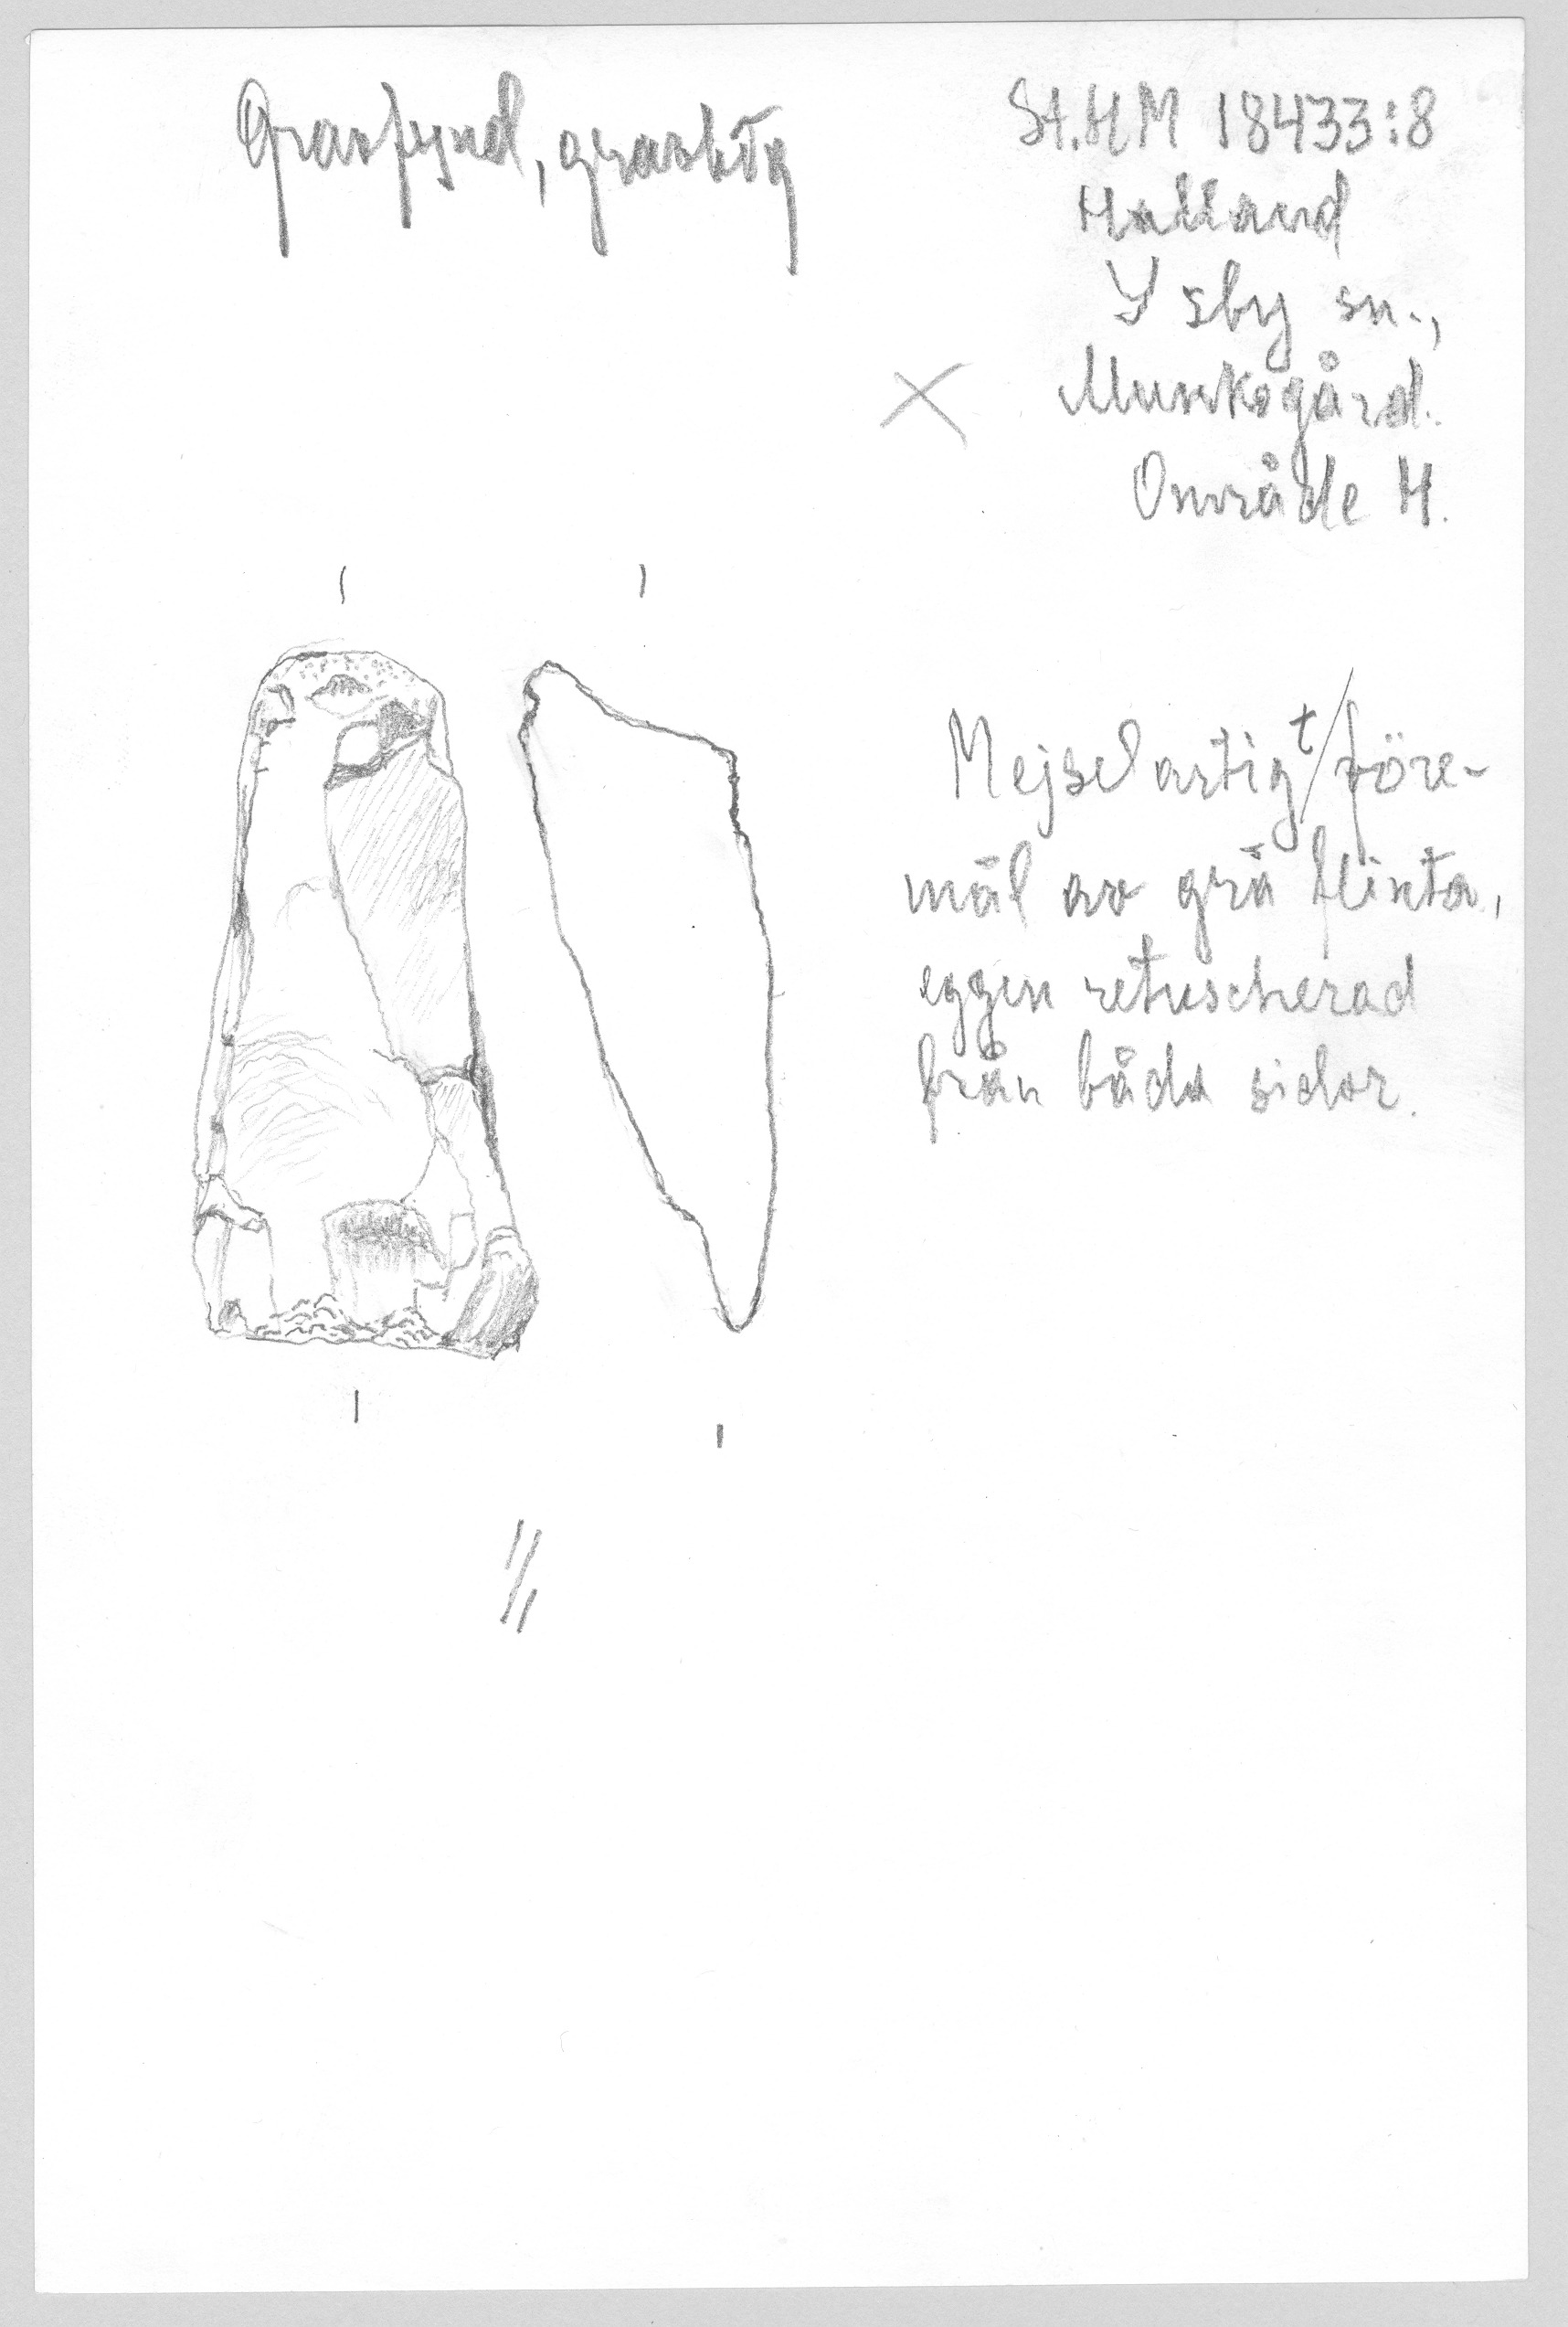 Gravfynd, gravhög
St.HM 18433:8
Halland
Ysby sn.,
X Munkagård.
Område H.
Mejselartigt/före-
mål av grå flinta,
eggen retuscherad
från båda sidor.
1/1